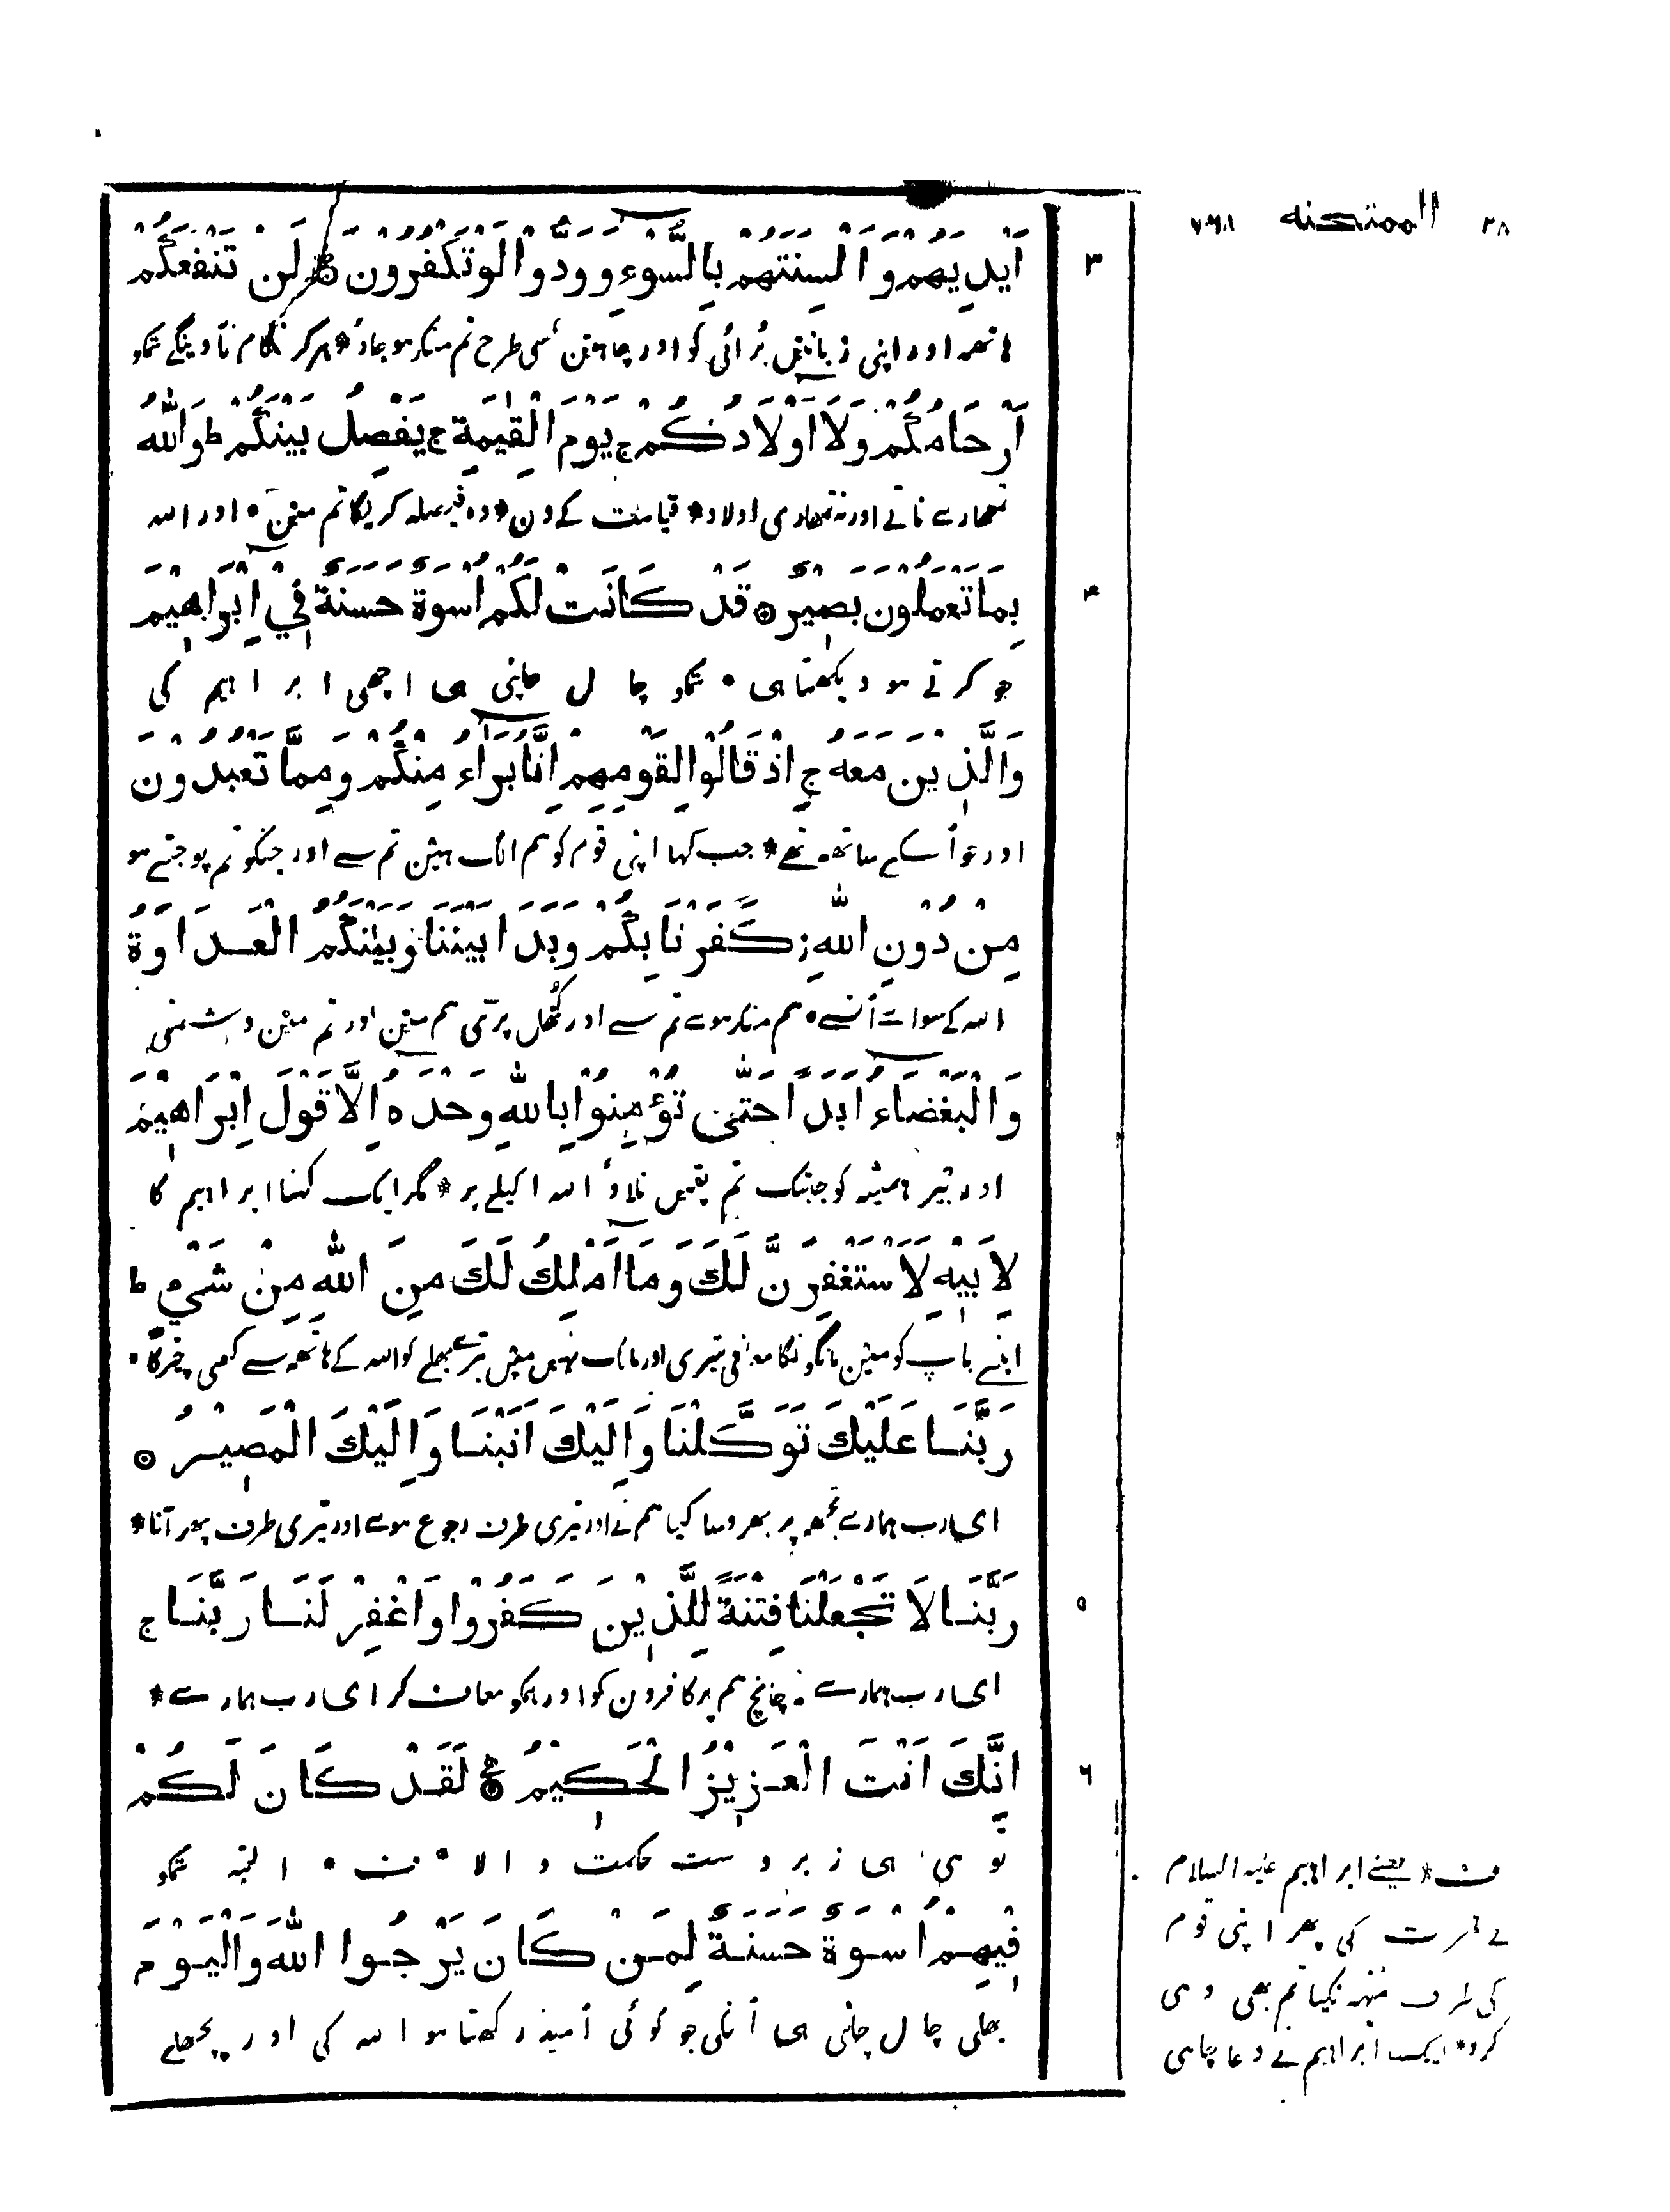 ٢٨ الممتحنه ٧٦٨
٣
اَيْدِيَهُمْ وَاَلْسِنَتَهُمْ بِالسُّوْٓءِ وَوَدُّوْا لَوْ تَكْفُرُوْنَ ۞ لَنْ تَنْفَعَكُمْ
هاتهه اور اپنی زبانیں بُرائی کو اور چاهیں کسی طرح تم منکر هو جاؤ * هرگز کام نآوینگے تمکو
اَرْحَامُكُمْ وَلَا اَوْلَادُكُمْ ج يَوْمَ الْقِيٰمَةِ ج يَفْصِلُ بَيْنَكُمْ ط وَاللّٰهُ
تمهارے ناتے اور نه تمهاری اولاد * قیامت کے دن * وه فیصله کریگا تم میں • اور الله
٤
بِمَا تَعْمَلُوْنَ بَصِيْرٌ ۞ قَدْ كَانَتْ لَكُمْ اُسْوَةٌ حَسَنَةٌ فِيْٓ اِبْرَاهِيْمَ
جو کرتے هو دیکهتا هی • تمکو چال چلنی هی اچهی ابراهیم کی
وَالَّذِيْنَ مَعَهُ ج اِذْ قَالُوْا لِقَوْمِهِمْ اِنَّا بُرَآءُ مِنْكُمْ وَمِمَّا تَعْبُدُوْنَ
اور جو اُسکے ساتهه تهے * جب کہا اپنی قوم کو هم الگ هیں تم سے اور جنکو تم پوجتے هو
مِنْ دُوْنِ اللّٰهِ ز كَفَرْنَا بِكُمْ وَبَدَا بَيْنَنَا وَبَيْنَكُمُ الْعَدَاوَةُ
الله کے سواے اُنسے • هم منکر هوے تم سے اور کُهل پڑی هم میں اور تم میں دشمنی
وَالْبَغْضَآءُ اَبَدًا حَتّٰى تُؤْمِنُوْا بِاللّٰهِ وَحْدَهُ اِلَّا قَوْلَ اِبْرَاهِيْمَ
اور بیر همیشه کو جبتک تم یقیں نلاؤ الله اکیلے پر * مگر ایک کہنا ابراهیم کا
لِاَبِيْهِ لَاَسْتَغْفِرَنَّ لَكَ وَمَا اَمْلِكُ لَكَ مِنَ اللّٰهِ مِنْ شَيْءٍ ط
اپنے باپ کو میں مانگونگا معافی تیری اور مالک نہیں میں تیرے بهلے کو الله کے هاتهه سے کسی چیز کا •
رَبَّنَا عَلَيْكَ تَوَكَّلْنَا وَاِلَيْكَ اَنَبْنَا وَاِلَيْكَ الْمَصِيْرُ ۞
ای رب همارے تجهه پر بهروسا کیا هم نے اور تیری طرف رجوع هوے اور تیری طرف پهر آنا *
٥
رَبَّنَا لَا تَجْعَلْنَا فِتْنَةً لِلَّذِيْنَ كَفَرُوْا وَاغْفِرْ لَنَا رَبَّنَا ج
ای رب همارے نه جانچ هم پر کافرون کو اور همکو معاف کر ای رب همارے *
٦
اِنَّكَ اَنْتَ الْعَزِيْزُ الْحَكِيْمُ ۞ لَقَدْ كَانَ لَكُمْ
تو هی هی زبردست حکمت والا * ف • البته تمکو
فِيْهِمْ اُسْوَةٌ حَسَنَةٌ لِمَنْ كَانَ يَرْجُوا اللّٰهَ وَالْيَوْمَ
بهلی چال چلنی هی اُنکی جو کوئی اُمید رکهتا هو الله کی اور پچهلے
ف * یعنے ابراهیم علیه السلام
نے هجرت کی پهر اپنی قوم
کی طرف مُنہه نکیا تم بهی وهی
کرو * ایک ابراهیم نے دعا چاهی